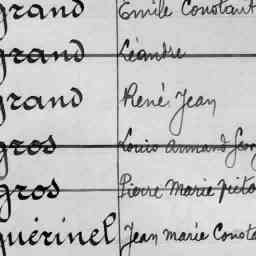 grand Emile Constant
grand Léandre
grand René Jean
gros Louis Armand Geor
gros Pierre Marie
guérinel Jean Marie Consta